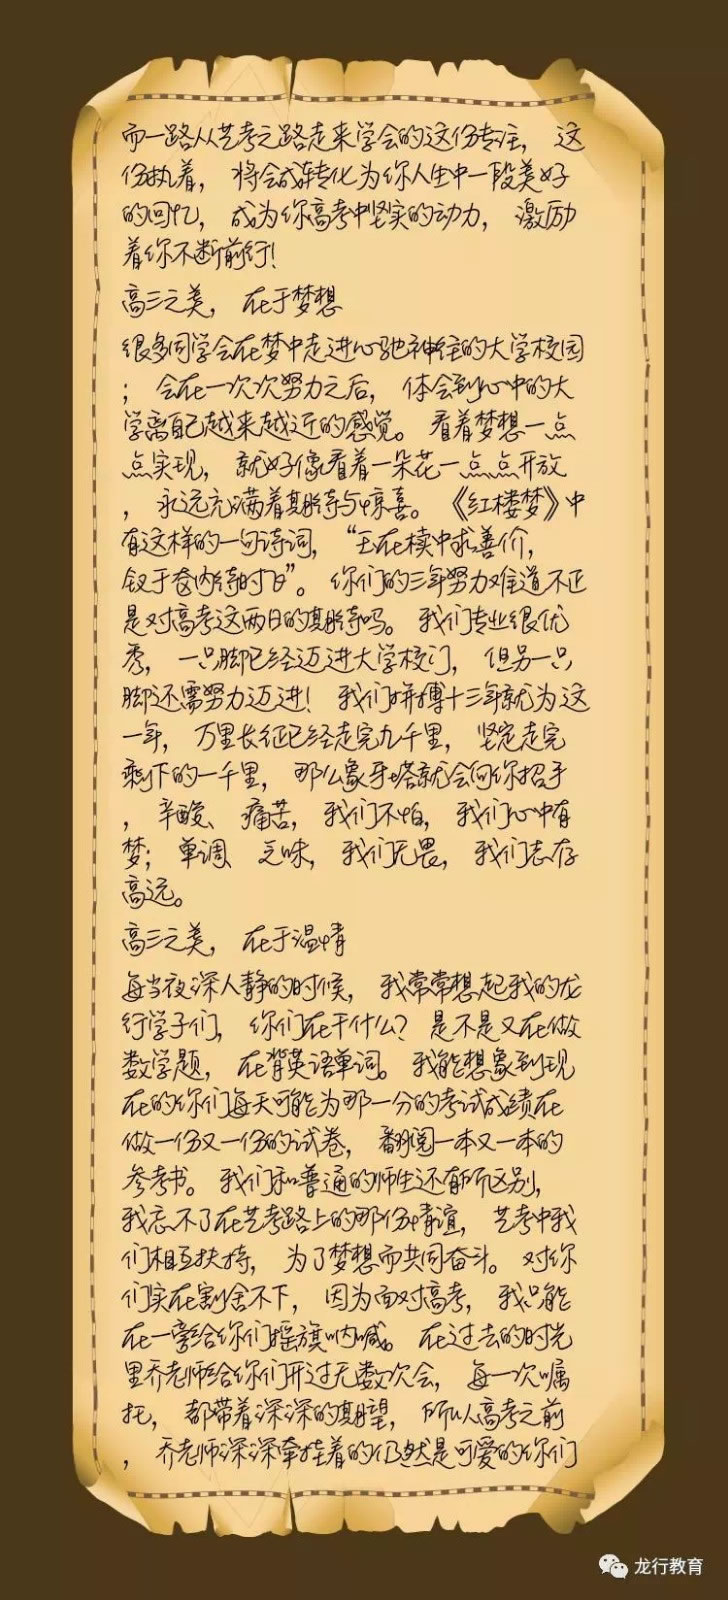 而一路从艺考之路走来学会的这份专注，这
份执着，将会成转化为你人生中一段美好
的回忆，成为你高考中坚实的动力，激励
着你不断前行！
高三之美，在于梦想
很多同学会在梦中走进心驰神往的大学校园
；会在一次次努力之后，体会到心中的大
学离自己越来越近的感觉。看着梦想一点
点实现，就好像看着一朵花一点点开放
，永远充满着期待与惊喜。《红楼梦》中
有这样的一句诗词，“玉在椟中求善价，
钗于奁内待时飞”。你们的三年努力难道不正
是对高考这两日的期待吗。我们专业很优
秀，一只脚已经迈进大学校门，但另一只
脚还需努力迈进！我们拼搏十三年就为这
一年，万里长征已经走完九千里，坚定走完
剩下的一千里，那么象牙塔就会向你招手
，辛酸、痛苦，我们不怕，我们心中有
梦；单调、乏味，我们无畏，我们志存
高远。
高三之美，在于温情
每当夜深人静的时候，我常常想起我的龙
行学子们，你们在干什么？是不是又在做
数学题，在背英语单词。我能想象到现
在的你们每天可能为那一分的考试成绩在
做一份又一份的试卷，翻阅一本又一本的
参考书。我们和普通的师生还有所区别，
我忘不了在艺考路上的那份情谊，艺考中我
们相互扶持，为了梦想而共同奋斗。对你
们实在割舍不下，因为面对高考，我只能
在一旁给你们摇旗呐喊。在过去的时光
里乔老师给你们开过无数次会，每一次嘱
托，都带着深深的期望，所以高考之前
，乔老师深深牵挂着的仍然是可爱的你们
龙行教育